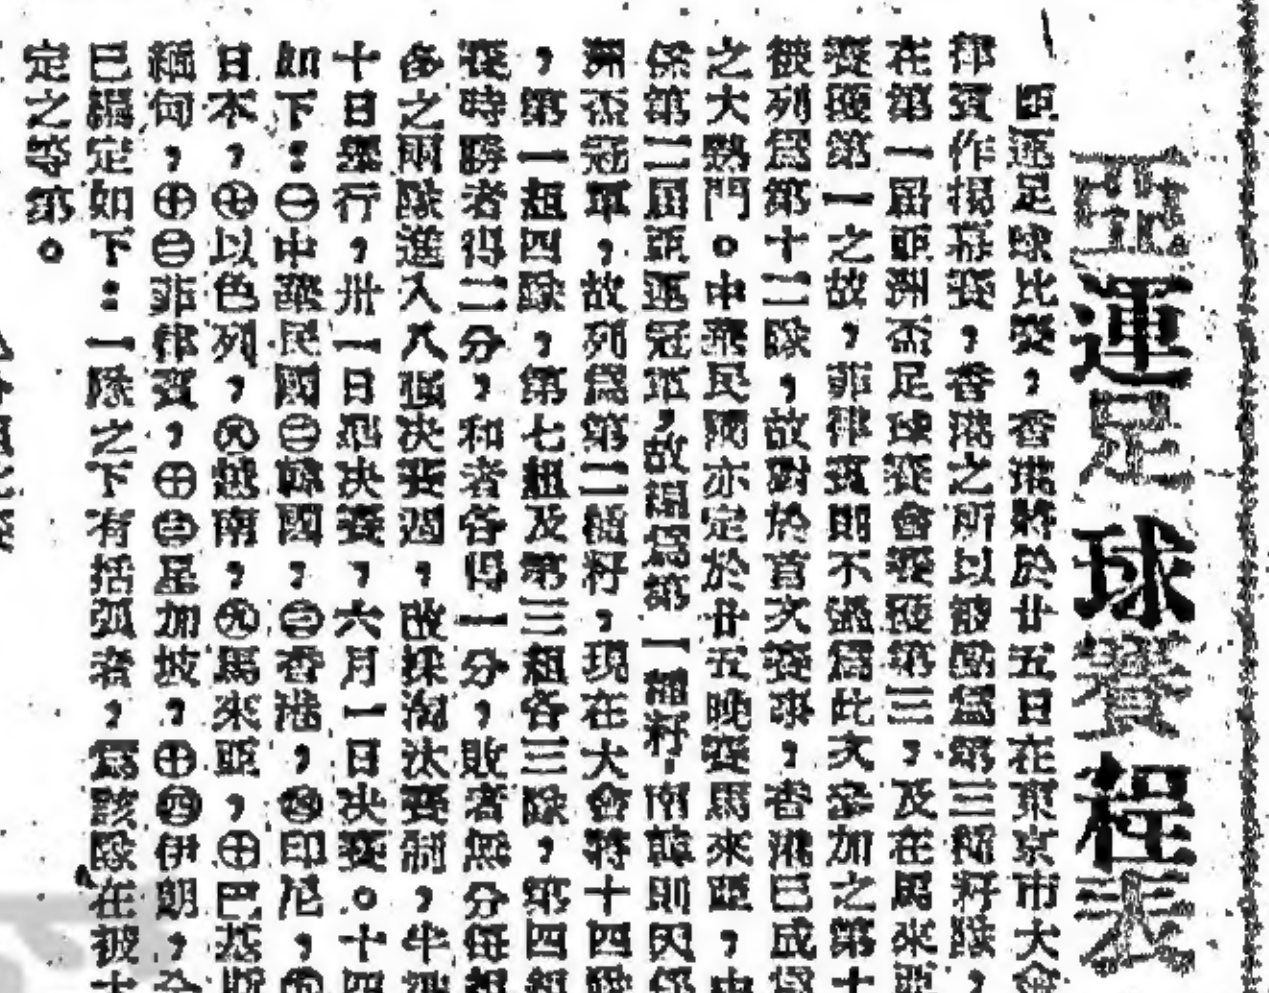 亞運足球賽程表
亞運足球比賽，香港將於廿五日在東京市大會
律賓作揭幕賽，香港之所以被劃為第三種籽隊，
在第一屆亞洲盃足球賽會獲第三，及在馬來亞
賽獲第一之故，菲律賓則不過為此次參加之第十
被列為第十二隊，故對於首次賽事，香港已成為
之大熱門。中華民國亦定於廿五晚賽馬來亞，中
係第二屆亞運冠軍，故編為第一種籽，南韓則因係
洲盃冠軍，故列為第二種籽，現在大會將十四隊
，第一組四隊，第七組及第三組各三隊，第四組
賽時勝者得二分，和者各得一分，敗者無分每組
多之兩隊進入八強決賽週，改採淘汰賽制，半準
十日舉行，卅一日準決賽，六月一日決賽。十四
如下：㊀中華民國㊁韓國，㊂香港，㊃印尼，㊄
日本，㊆以色列，㊇越南，㊈馬來亞，㊉巴基斯
緬甸，㊉㊁菲律賓，㊉㊂星加坡，㊉㊃伊朗，
已編定如下：一隊之下有括弧者，為該隊在被大
定之等第。